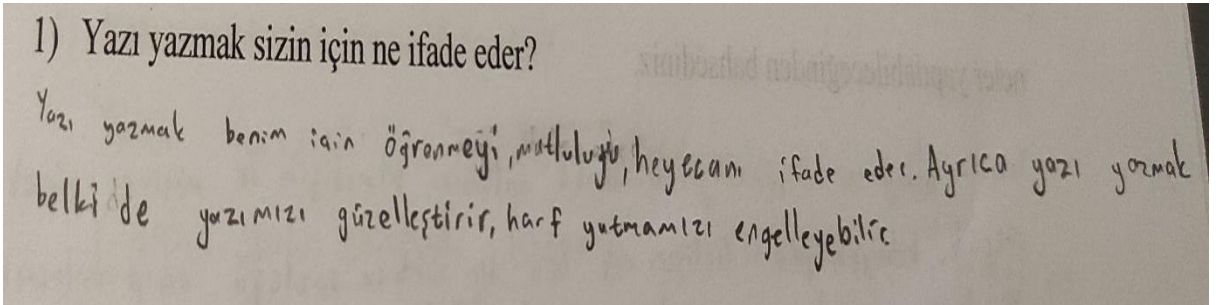 1) Yazı yazmak sizin için ne ifade eder?
Yazı yazmak benim için öğrenmeyi, mutluluğu, heyecanı ifade eder. Ayrıca yazı yazmak
belki de yazımızı güzelleştirir, harf yutmamızı engelleyebilir